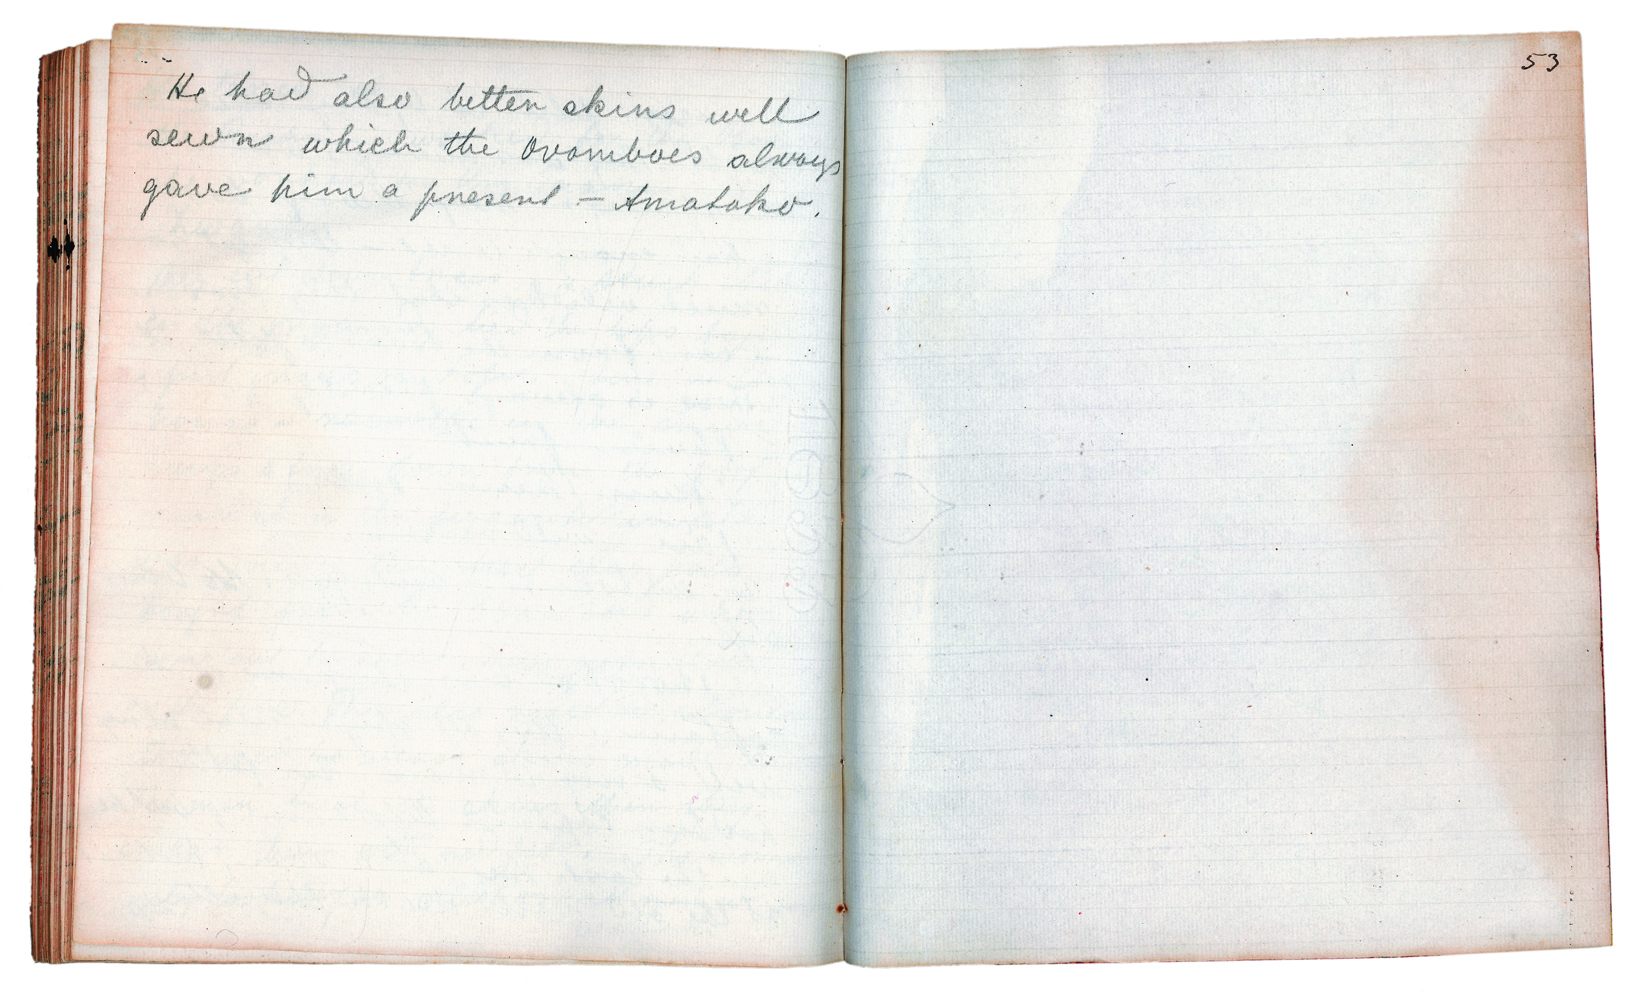 He had also better skins well
sewn which the Ovamboes always
gave him a present – Amatoko.
53